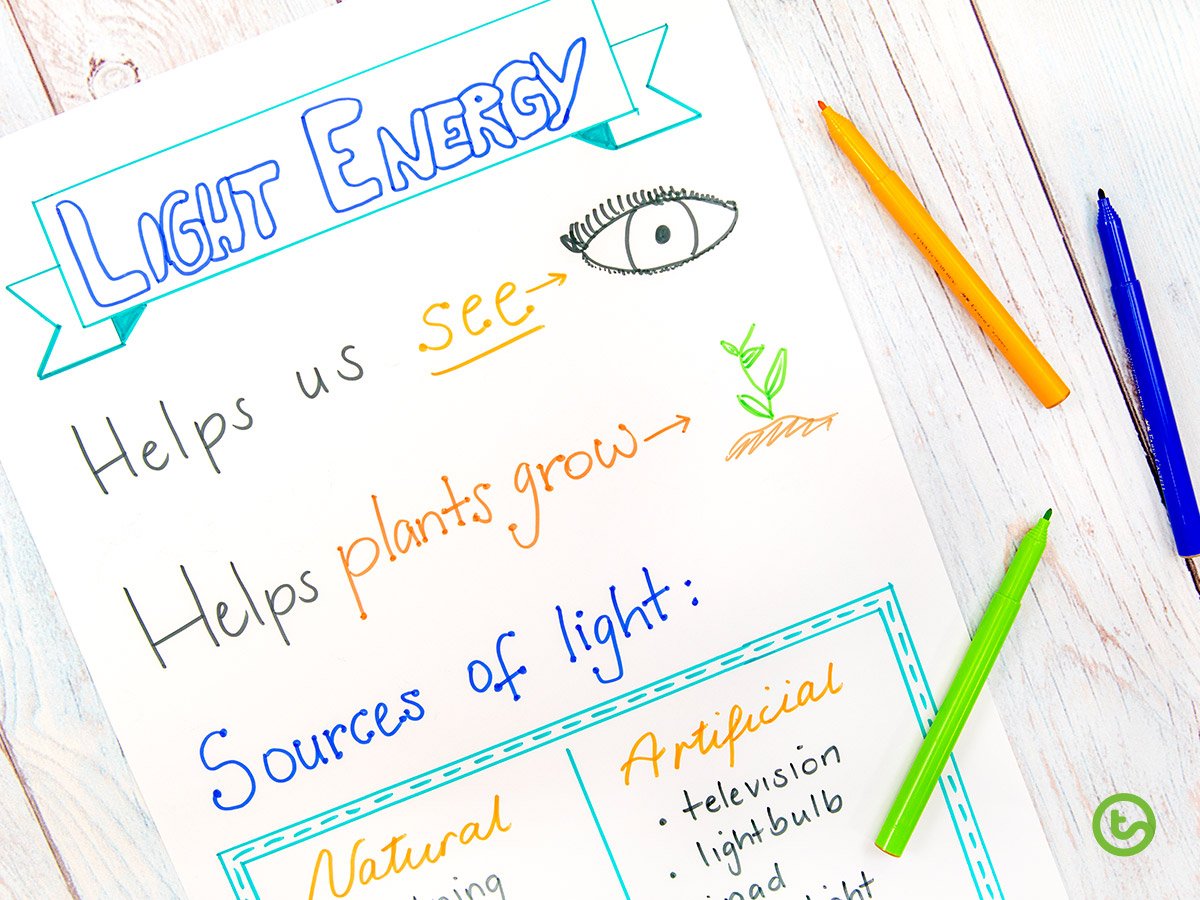 LIGHT ENERGY
Helps us see
Helps plants grow
Sources of light:
Natural
Artificial
• television
lightbulb
• ipad